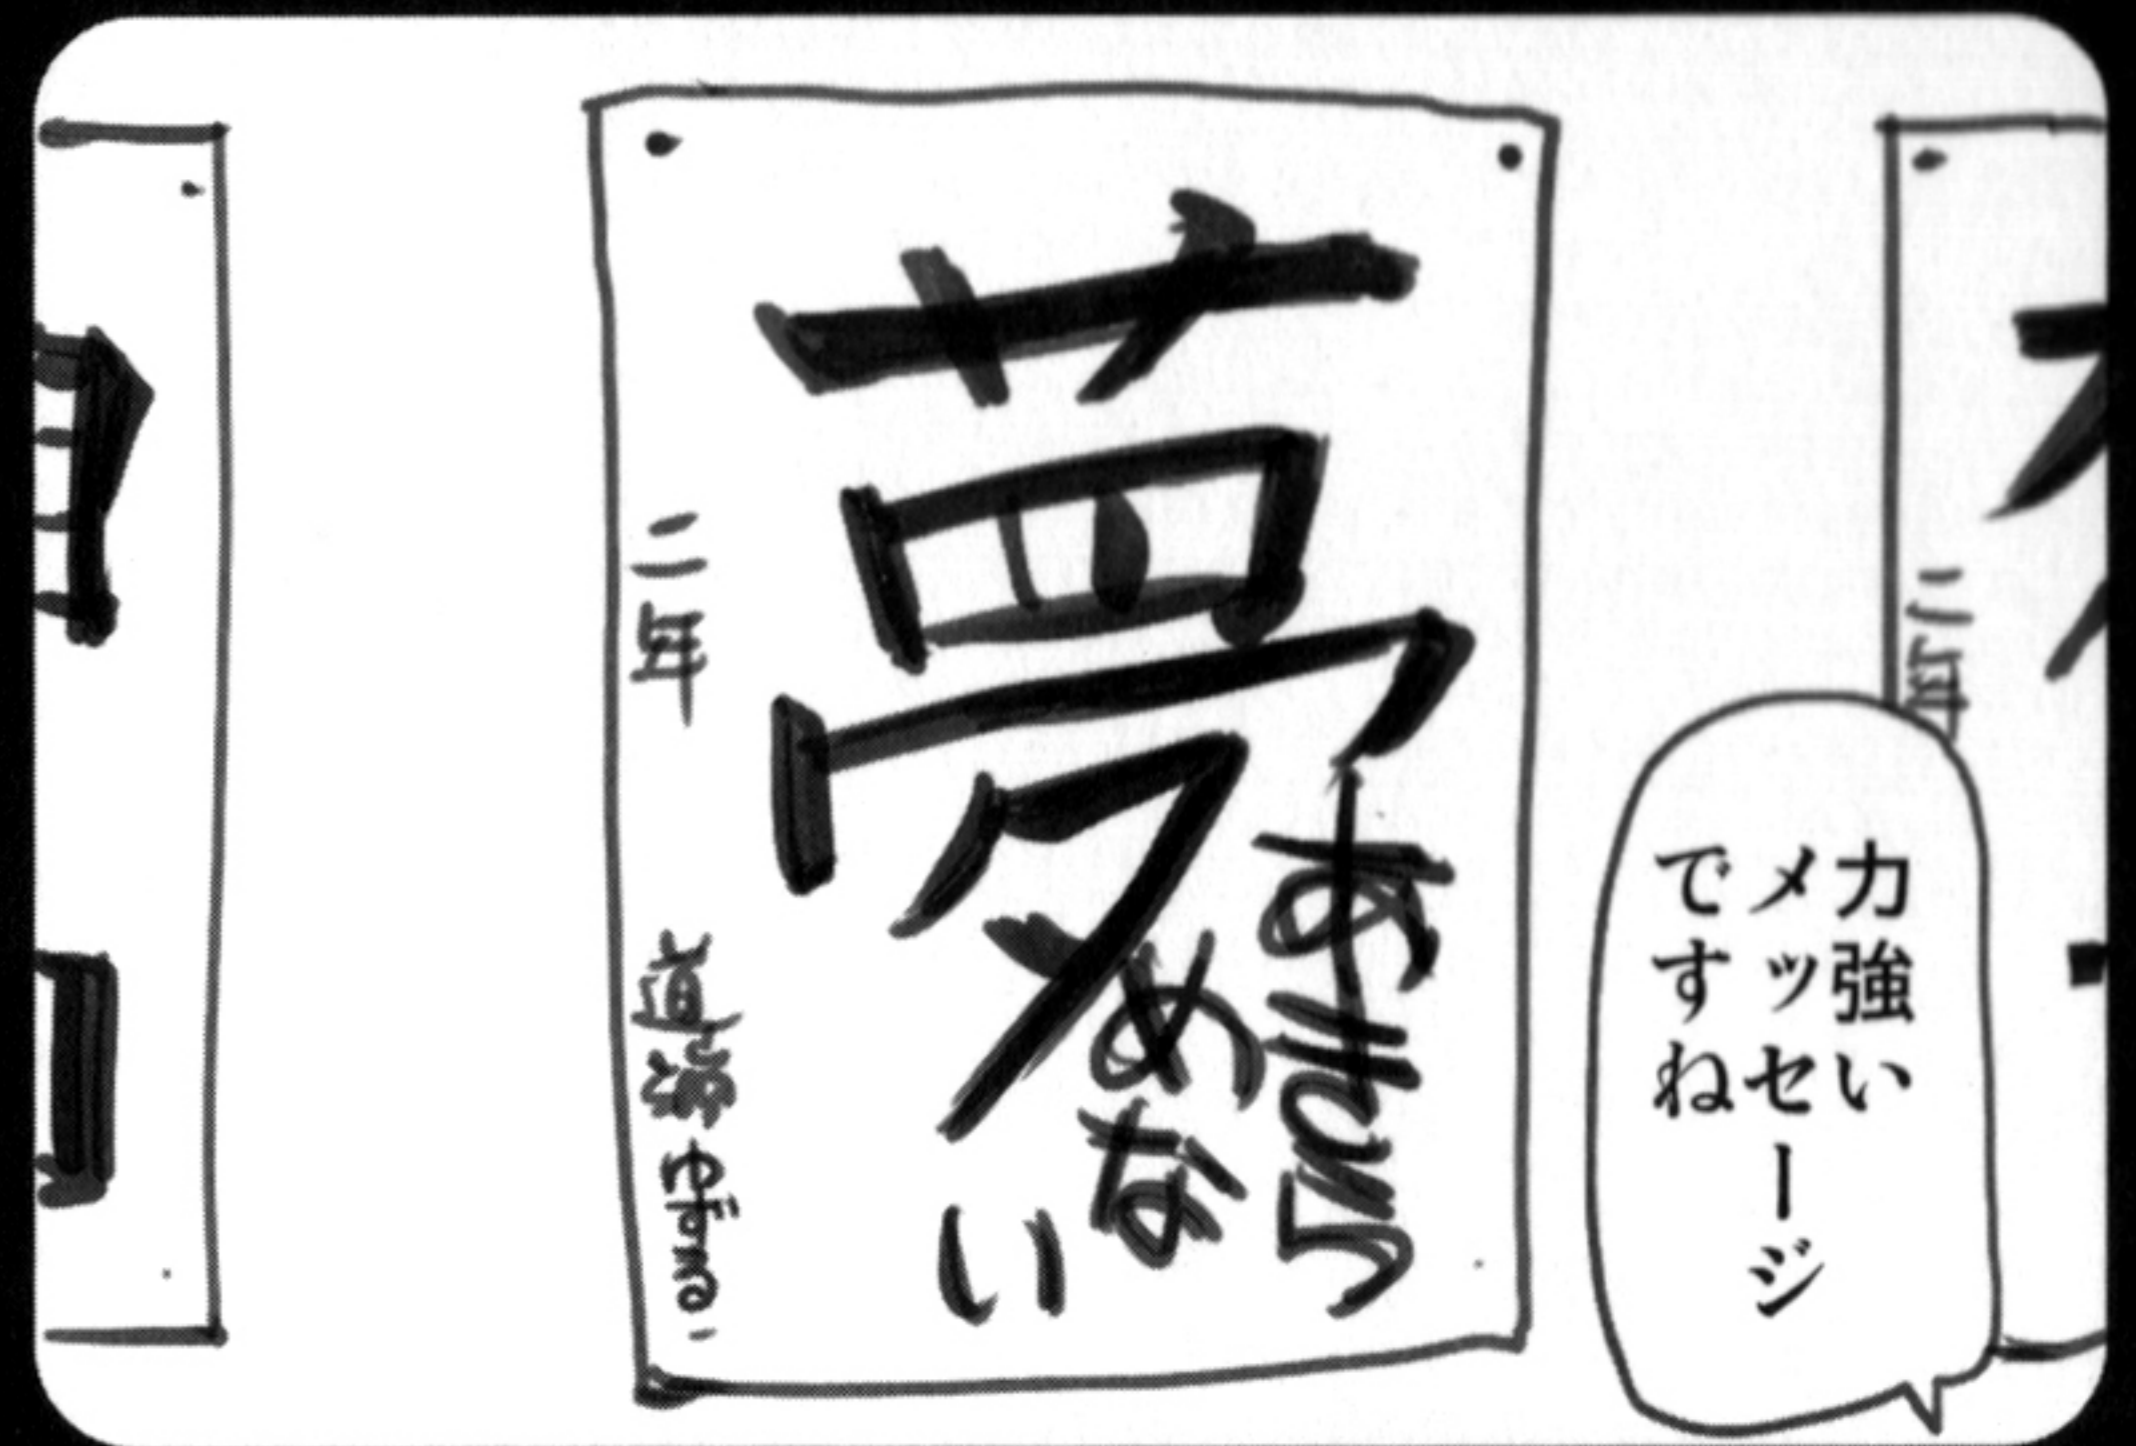 力強い
メッセージ
ですね
夢
あきら
めな
い
二年
二年